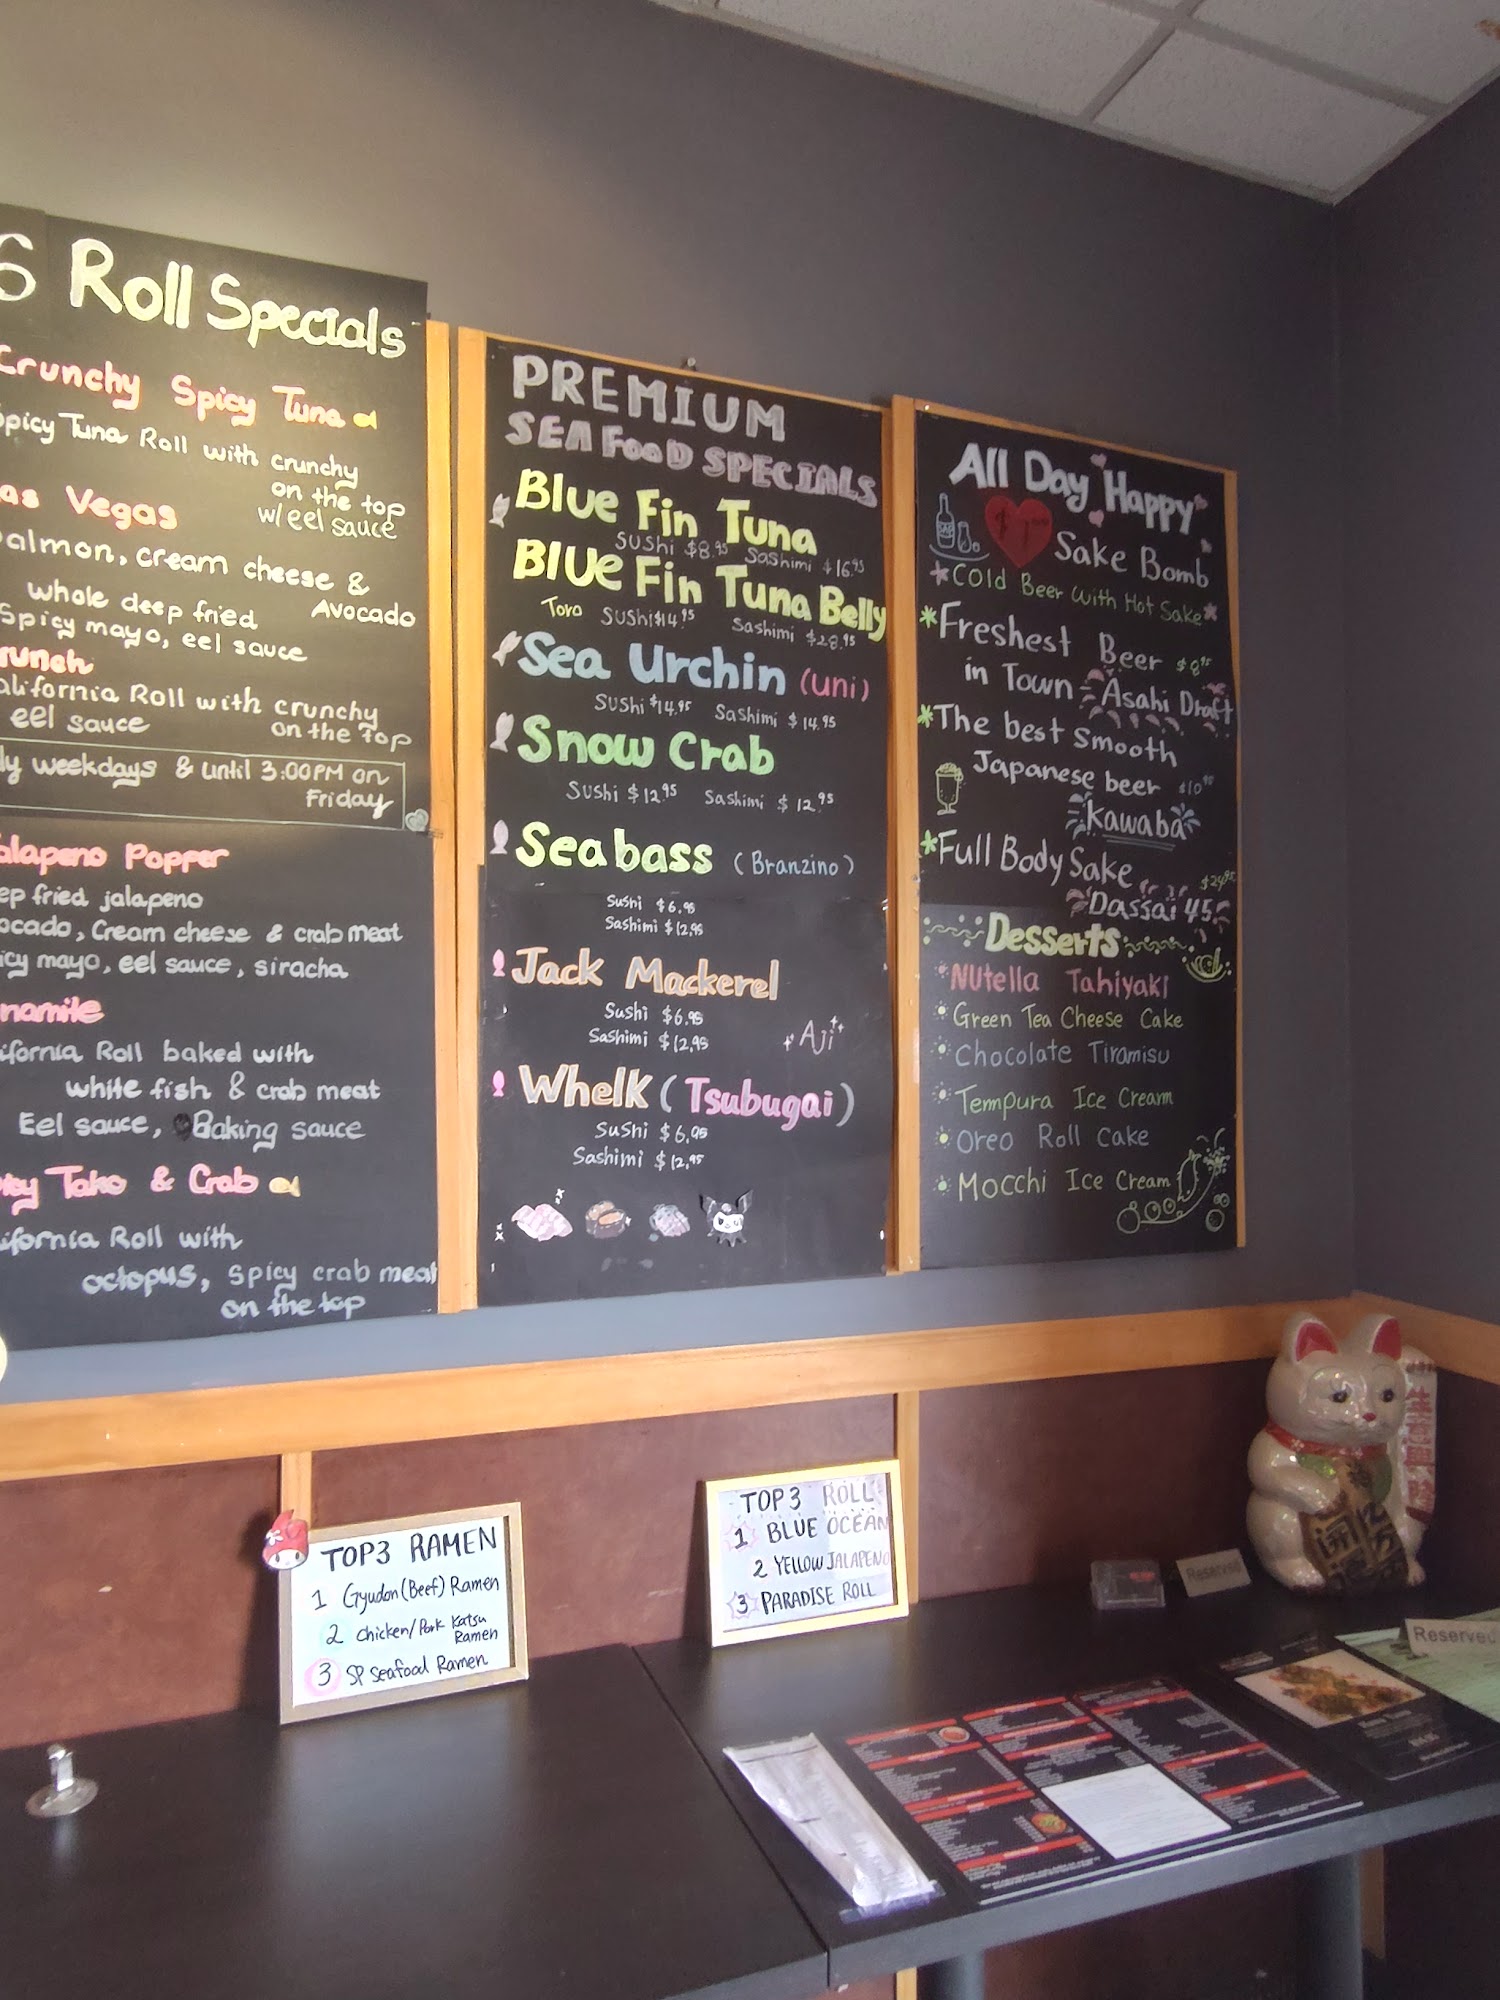 6 Roll Specials
Crunchy Spicy Tuna
Spicy Tuna Roll with crunchy
on the top
w/ eel sauce
as Vegas
almon, cream cheese &
Avocado
whole deep fried
Spicy mayo, eel sauce
runch
alifornia Roll with crunchy
on the top
eel sauce
ly weekdays & until 3:00PM on
Friday
alapeno Popper
ep fried jalapeno
ocado, Cream cheese & crab meat
icy mayo, eel sauce, siracha
namite
ifornia Roll baked with
white fish & crab meat
Eel sauce, Baking sauce
icy Tako & Crab
ifornia Roll with
octopus, spicy crab meat
on the top
PREMIUM
SEAFOOD SPECIALS
Blue Fin Tuna
Sushi $8.95 Sashimi $16.95
Blue Fin Tuna Belly
Toro Sushi $14.95 Sashimi $28.95
Sea Urchin (uni)
Sushi $14.95 Sashimi $14.95
Snow Crab
Sushi $12.95 Sashimi $12.95
Seabass (Branzino)
Sushi $6.95
Sashimi $12.95
Jack Mackerel
Sushi $6.95
Sashimi $12.95
Aji
Whelk (Tsubugai)
Sushi $6.95
Sashimi $12.95
All Day Happy
Sake Bomb
*Cold Beer With Hot Sake*
*Freshest Beer $8.95
in Town Asahi Draft
*The best Smooth
Japanese beer $10.95
Kawaba
*Full Body Sake
$24.95
Dassai 45
Desserts
Nutella Tahiyaki
Green Tea Cheese Cake
Chocolate Tiramisu
Tempura Ice Cream
Oreo Roll Cake
Mocchi Ice Cream
TOP3 RAMEN
1 Gyudon (Beef) Ramen
2 Chicken/Pork Katsu
Ramen
3 SP Seafood Ramen
TOP3 ROLL
1 BLUE OCEAN
2 YELLOW JALAPENO
3 PARADISE ROLL
Reserved
Reserved